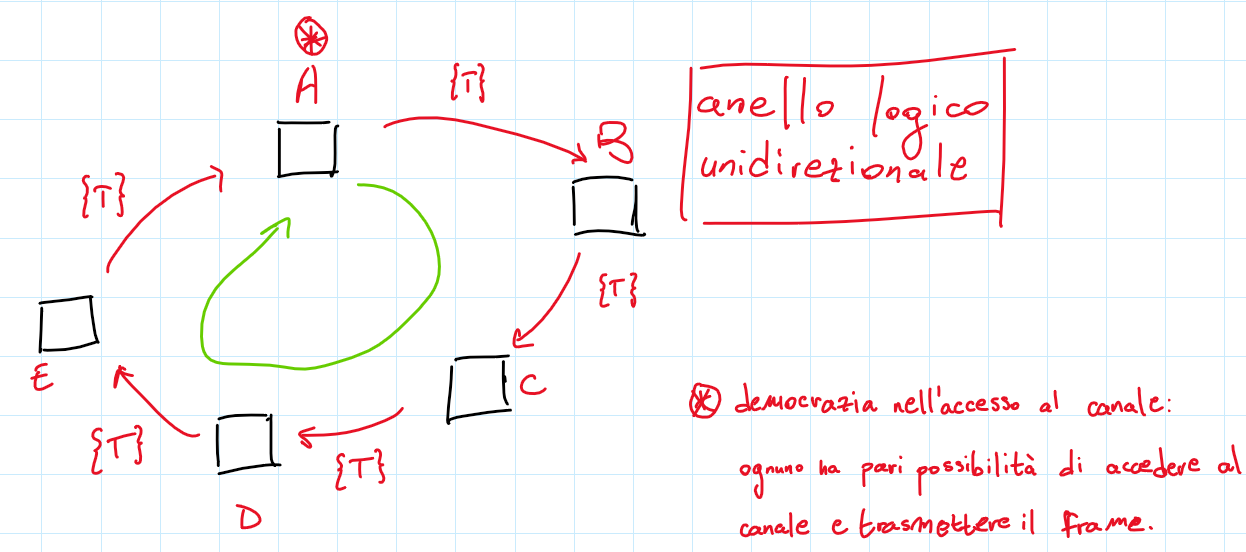 A
{T}
B
anello logico
unidirezionale
{T}
{T}
E
C
{T}
{T}
D
⊛ democrazia nell'accesso al canale:
ognuno ha pari possibilità di accedere al
canale e trasmettere il frame.